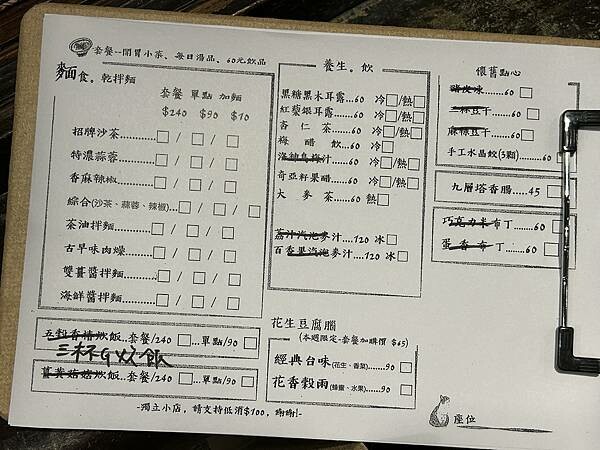 套餐--開胃小菜、每日湯品、60元飲品
麵食。乾拌麵
套餐 單點 加麵
$240 $90 $10
招牌沙茶............□/□/□
特濃蒜蓉............□/□/□
香麻辣椒............□/□/□
綜合(沙茶、蒜蓉、辣椒)...□/□/□
茶油拌麵............□/□/□
古早味肉燥.........□/□/□
雙薑醬拌麵.........□/□/□
海鮮醬拌麵.........□/□/□
飯..套餐/240□...單點/90□
三杯G炊飯
薑黃菇菇炊飯..套餐/240□...單點/90□
-獨立小店，請支持低消$100，謝謝!-
養生。飲
黑糖黑木耳露...60 冷□/熱□
紅藜銀耳露......60 冷□/熱□
杏仁茶......60 冷□/熱□
梅醋飲......60 冷□
洛神烏梅汁......60 冷□/熱□
奇亞籽果醋......60 冷□/熱□
大麥茶......60 熱□
荔汁汽泡麥汁....120 冰□
百香果汽泡麥汁....120 冰□
花生豆腐腦
(本週限定-套餐加購價 $65)
經典台味(花生、香菜)......90□
花香穀雨(蜂蜜、水果)......90□
懷舊點心
......60□
豆干......60□
麻辣豆干......60□
手工水晶餃(5顆)......60□
九層塔香腸...45□
巧克力米布丁......60□
蛋香布丁......60□
座位